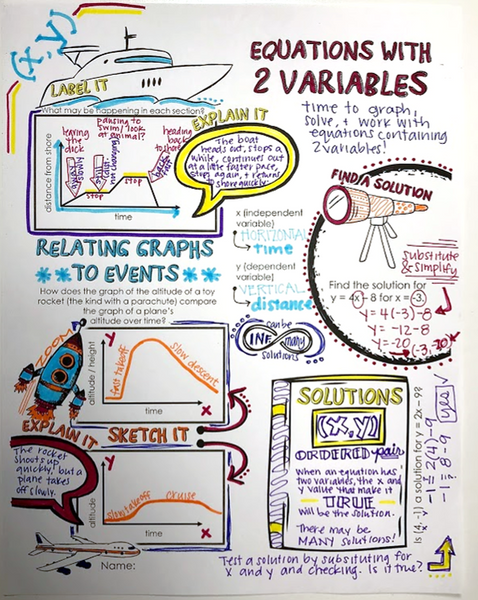 (x,y)
EQUATIONS WITH
2 VARIABLES
time to graph,
solve, + work with
equations containing
2 variables!
LABEL IT
What may be happening in each section?
EXPLAIN IT
leaving the dock
pausing to swim/look at animal?
heading back to shore
stop
stop
distance from shore
time
The boat
heads out, stops a
while, continues out
at a
faster pace,
stops again, + returns
to shore quickly.
RELATING GRAPHS
TO EVENTS
x (independent
variable)
HORIZONTAL
time
y (dependent
variable)
VERTICAL
distance
FIND A SOLUTION
substitute
& simplify
Find the solution for
y = 4x - 8 for x = -3.
y = 4(-3) - 8
y = -12 - 8
y = -20
(-3, -20)
How does the graph of the altitude of a toy
rocket (the kind with a parachute) compare
the graph of a plane's
altitude over time?
can be
INF. many
solutions
ZOOM
Y
altitude / height
fast takeoff
slow descent
time
X
EXPLAIN IT
SKETCH IT
The rocket
shoots up
quickly, but a
plane takes
off slowly.
Y
altitude
slow takeoff
cruise
time
X
Name:
SOLUTIONS
(X,Y)
ORDERED pair
When an equation has
two variables, the x and
y value that make it
TRUE
will be the solution.
There may be
MANY solutions!
Is (4, -1) a solution for y = 2x - 9?
x y
-1 = 2(4) - 9
-1 = 8 - 9
yes ✓
Test a solution by substituting for
x and y and checking. Is it true?